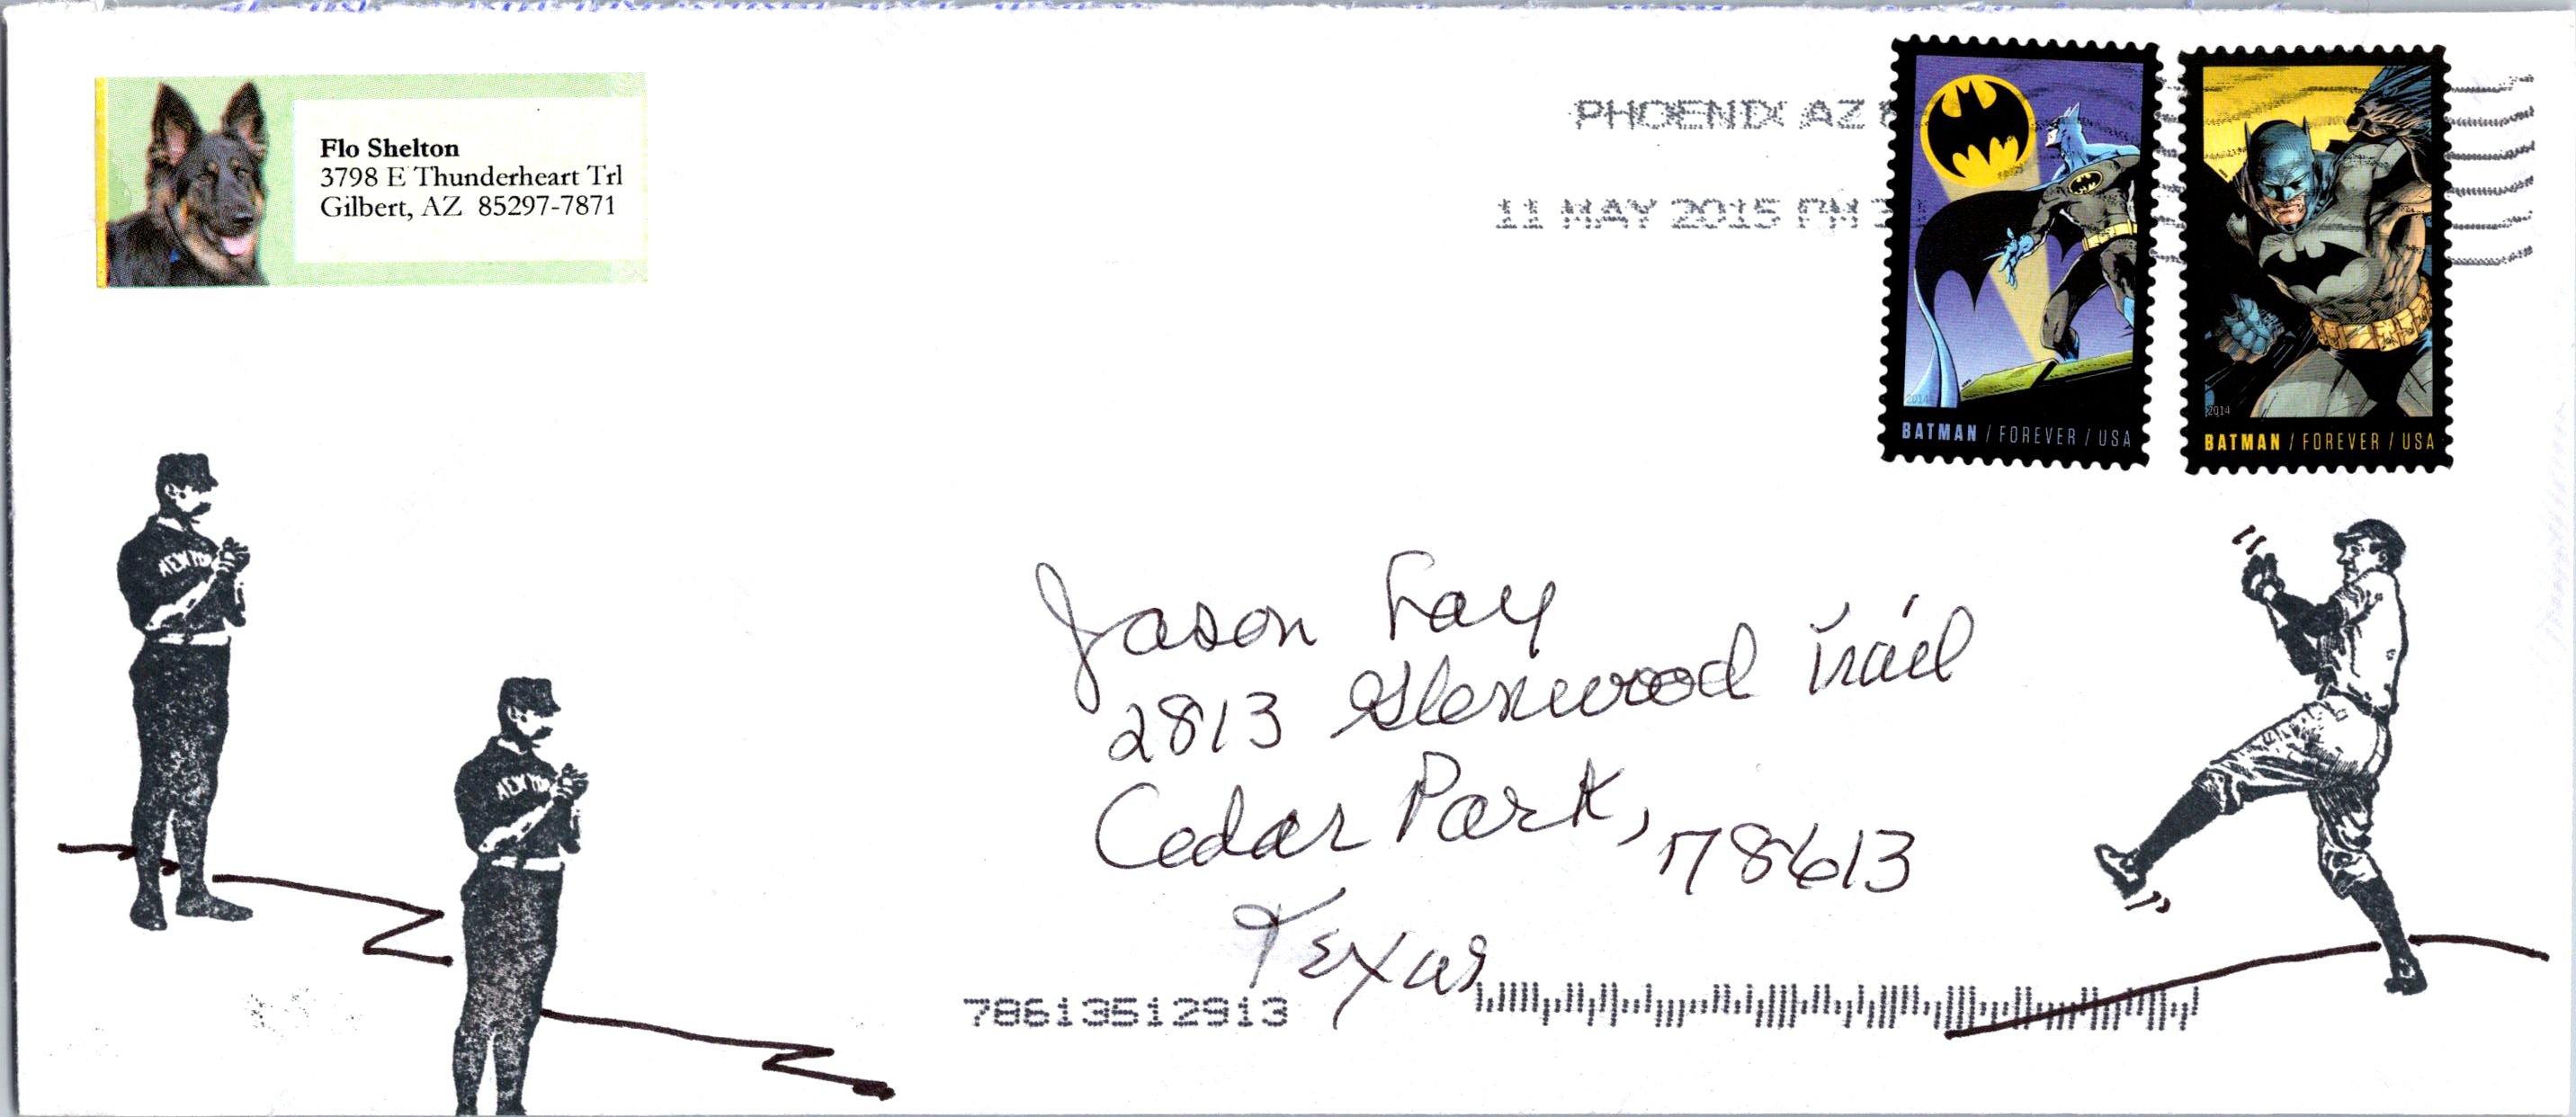 Flo Shelton
3798 E Thunderheart Trl
Gilbert, AZ 85297-7871
PHOENIX AZ
11 MAY 2015 PM 3
2014
BATMAN / FOREVER / USA
2014
BATMAN / FOREVER / USA
NEW YO
NEW YO
Jason Fay
2813 Glenwood Trail
Cedar Park, 78613
Texas
78613512913